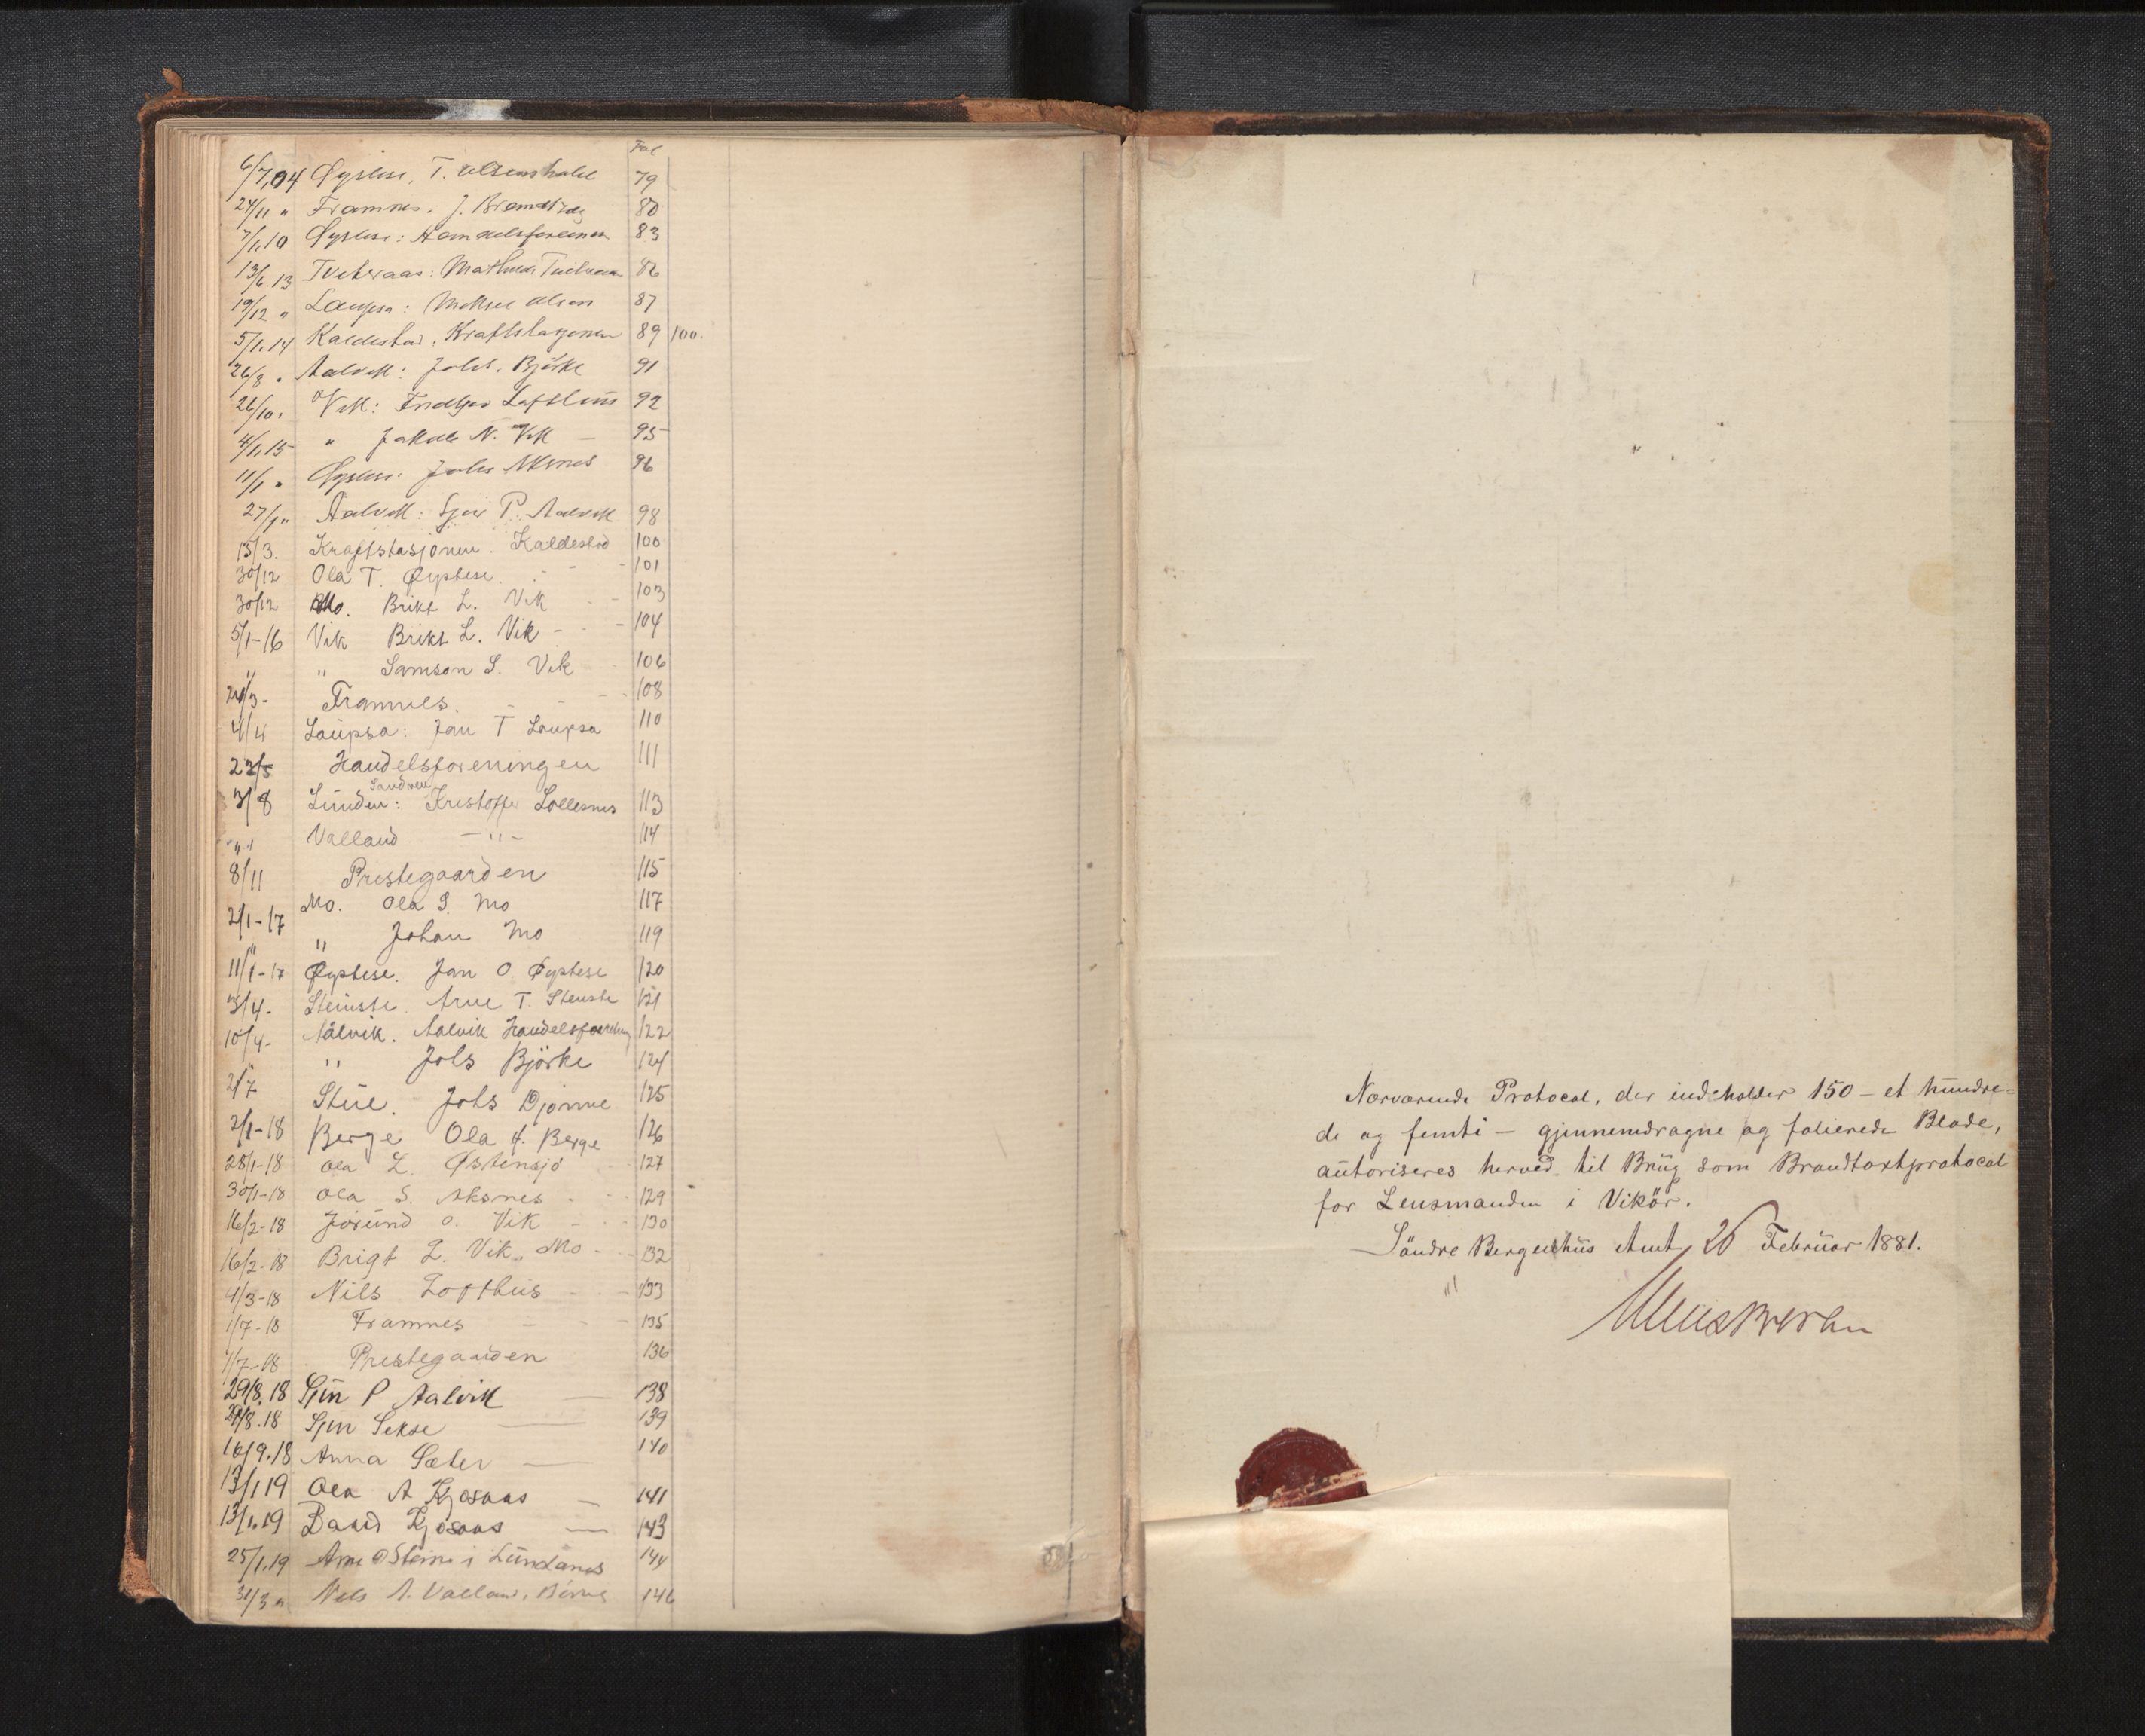 Fol
6/7,04 Øystese, T. 79
24/11 " Framnes. J. 80
7/1,10 Øystese: Handelsforeningen 83
13/6.13 Tveteraas: Mathias Tveteraas 86
19/12 " Laupsa: Olsen 87
5/1.14 Kaldestad. Kraftstasjonen 89 100.
26/8 " Aalvik: Johs. Björke 91
26/10. Vik: Fridtjov Lofthus 92
4/1,15 " Jakob N. Vik — 95
11/1 " Øystese: Johs Aksnes 96
27/1 " Aalvik: Sjur P. Aalvik 98
13/3. Kraftstasjonen. Kaldestad 100
30/12 Ola T. Øystese. - - - 101
30/12 Mo. Brikt L. Vik - - 103
5/1-16 Vik Brikt L. Vik - - - 104
" " Samson S. Vik 106
24/3- Framnes. - - - 108
4/4 Laupsa: Jan T Laupsa 110
22/5 Handelsforeningen 111
Sandven
3/8 Linden: Kristoffer Lollesnes 113
" Valland —"— 114
8/11 Prestegaarden 115
2/1-17 Mo. Ola S. Mo 117
" " Johan Mo 119
11/1-17 Øystese. Jan O. Øystese 120
3/4- Steinstø. Arne T. Steinstø 121
10/4- Aalvik. Aalvik Handelsforening 122
" " Johs Björke 124
2/7 Stue. Johs Djønne 125
2/1-18 Berge Ola J. Berge 126
28/1-18 Ola L. Østensjö - - 127
30/1-18 Ola S. Aksnes - - - 129
16/2-18 Jörund O. Vik - - - 130
16/2-18 Brigt L. Vik, Mo - - - 132
4/3-18 Nils Lofthus - - - 133
1/7-18 Framnes - - - 135
1/7-18 Prestegaarden 136
29/8.18 Sjur P Aalvik — 138
29/8.18 Sjur Sekse — 139
16/9.18 Anna Sæter — 140
13/1,19 Ola A Kjosaas — 141
13/1.19 Baard Kjosaas — 143
25/1.19 Arne O Steine i Lundanes 144
31/3 " Nils A. Valland, 146
Nærværende Protocol, der indeholder 150 - et hundre-
de og femti - gjennemdragne og folierede Blade,
autoriseres herved til Brug som Brandtaxtprotocol
for Lensmanden i Vikör.
Söndre Bergenhus Amt, 26 Februar 1881.